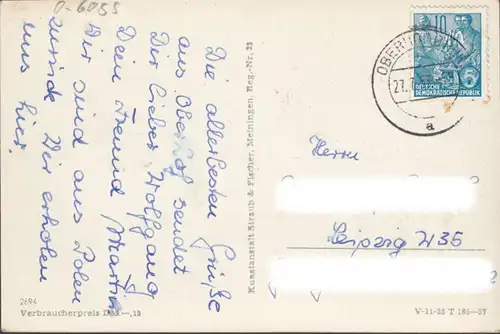 O-6055
Die allerbesten Grüße
aus Oberhof sendet
Dir lieber Wolfgang
Dein Freund Martin
Wir sind aus Polen
zurück. Wir erholen
uns hier.
Kunstanstalt Straub & Fischer, Meiningen, Reg.-Nr. 23
10
DEUTSCHE
DEMOKRATISCHE REPUBLIK
OBERHOF
27.
a
Herrn
Leipzig W35
2694
Verbraucherpreis DM —,15
V-11-28 T 185—57